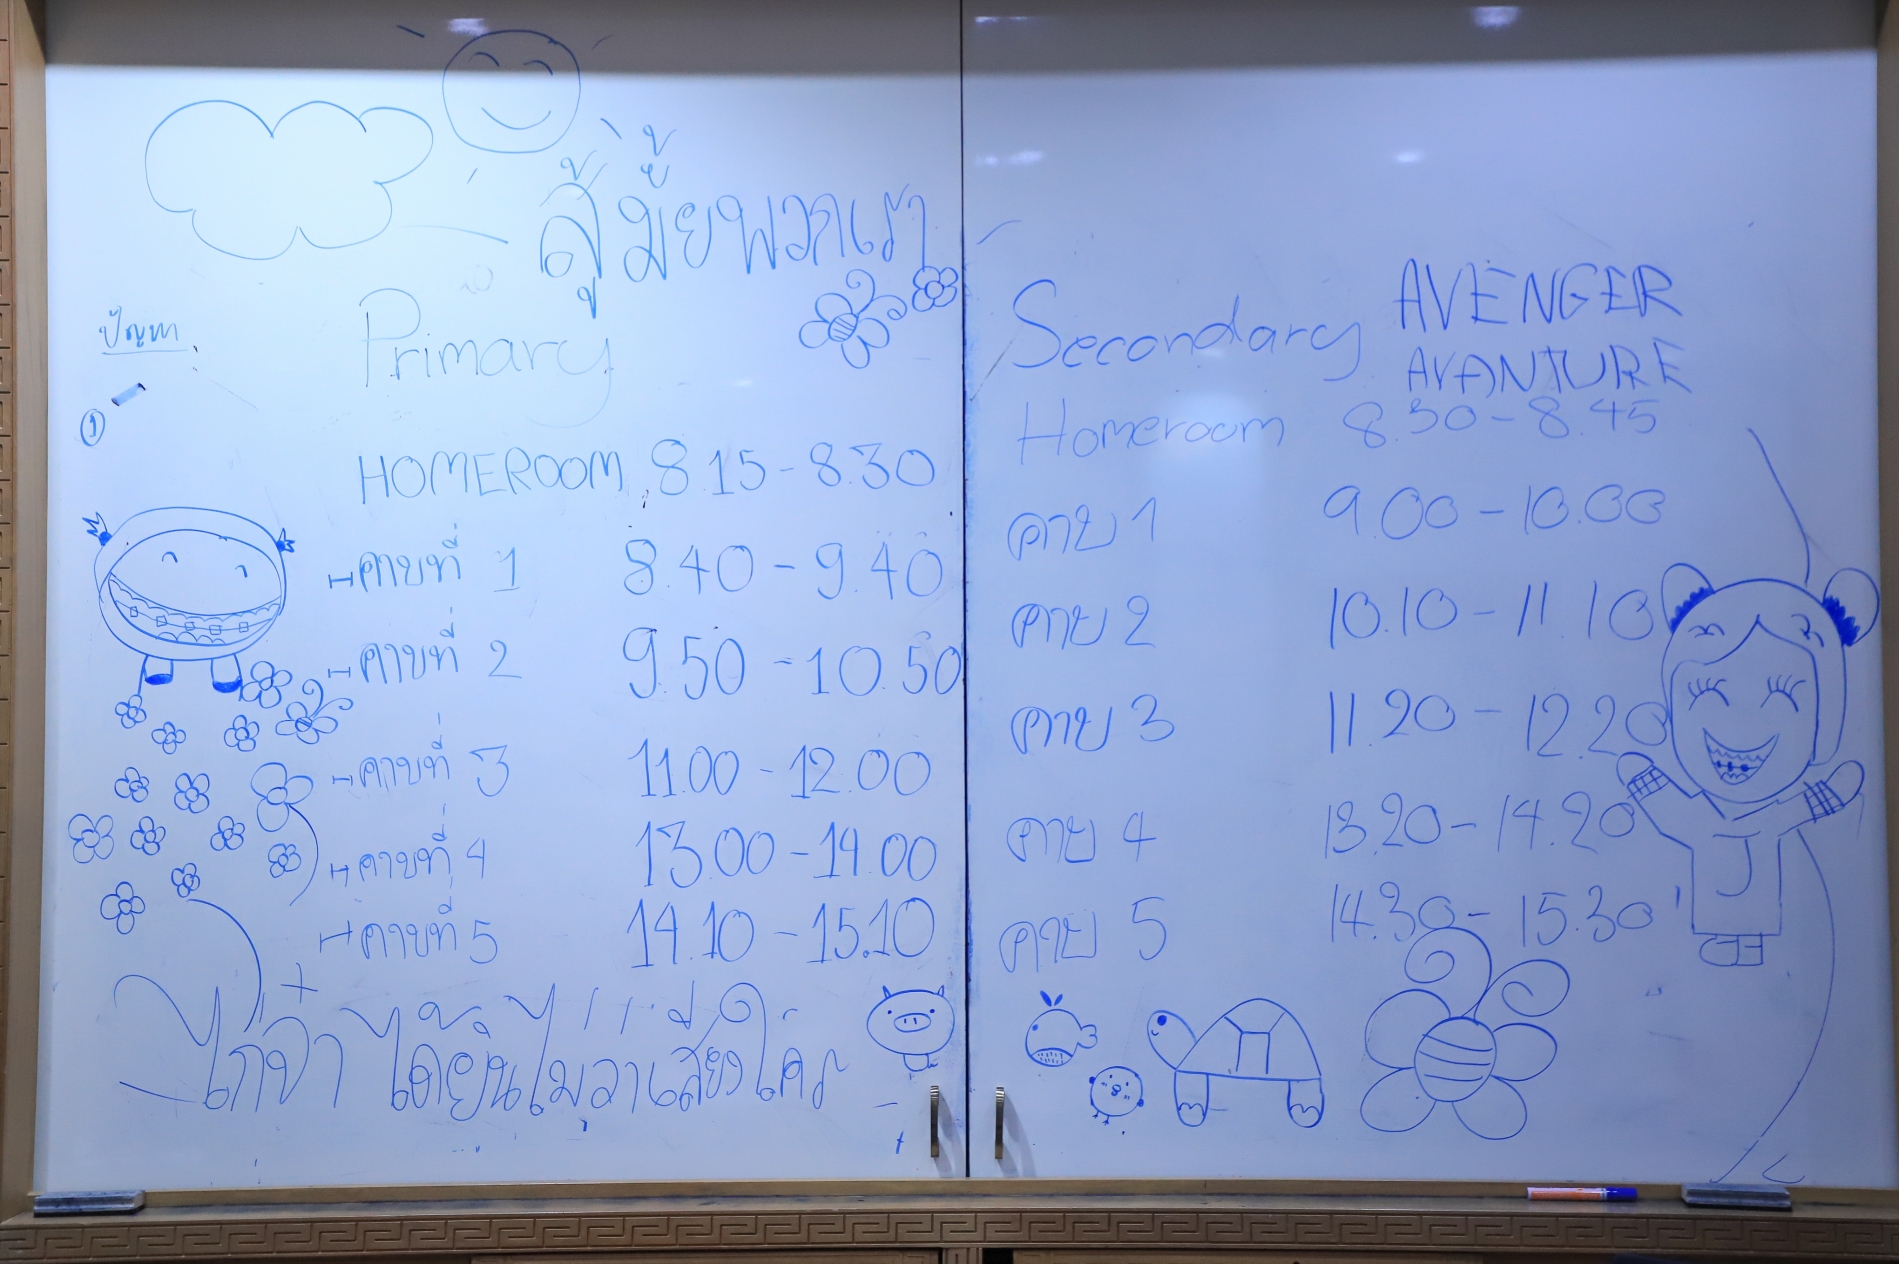 สู้มั้ยพวกเรา
ปัญหา
①
Primary
HOMEROOM 8.15 - 8.30
คาบที่ 1 8.40 - 9.40
คาบที่ 2 9.50 - 10.50
คาบที่ 3 11.00 - 12.00
คาบที่ 4 13.00 - 14.00
คาบที่ 5 14.10 - 15.10
ไก่จ๋า ได้ยินไหมว่าเสียงใคร
Secondary
AVENGER
AVANTURE
Homeroom 8.30 - 8.45
คาบ 1 9.00 - 10.00
คาบ 2 10.10 - 11.10
คาบ 3 11.20 - 12.20
คาบ 4 13.20 - 14.20
คาบ 5 14.30 - 15.30